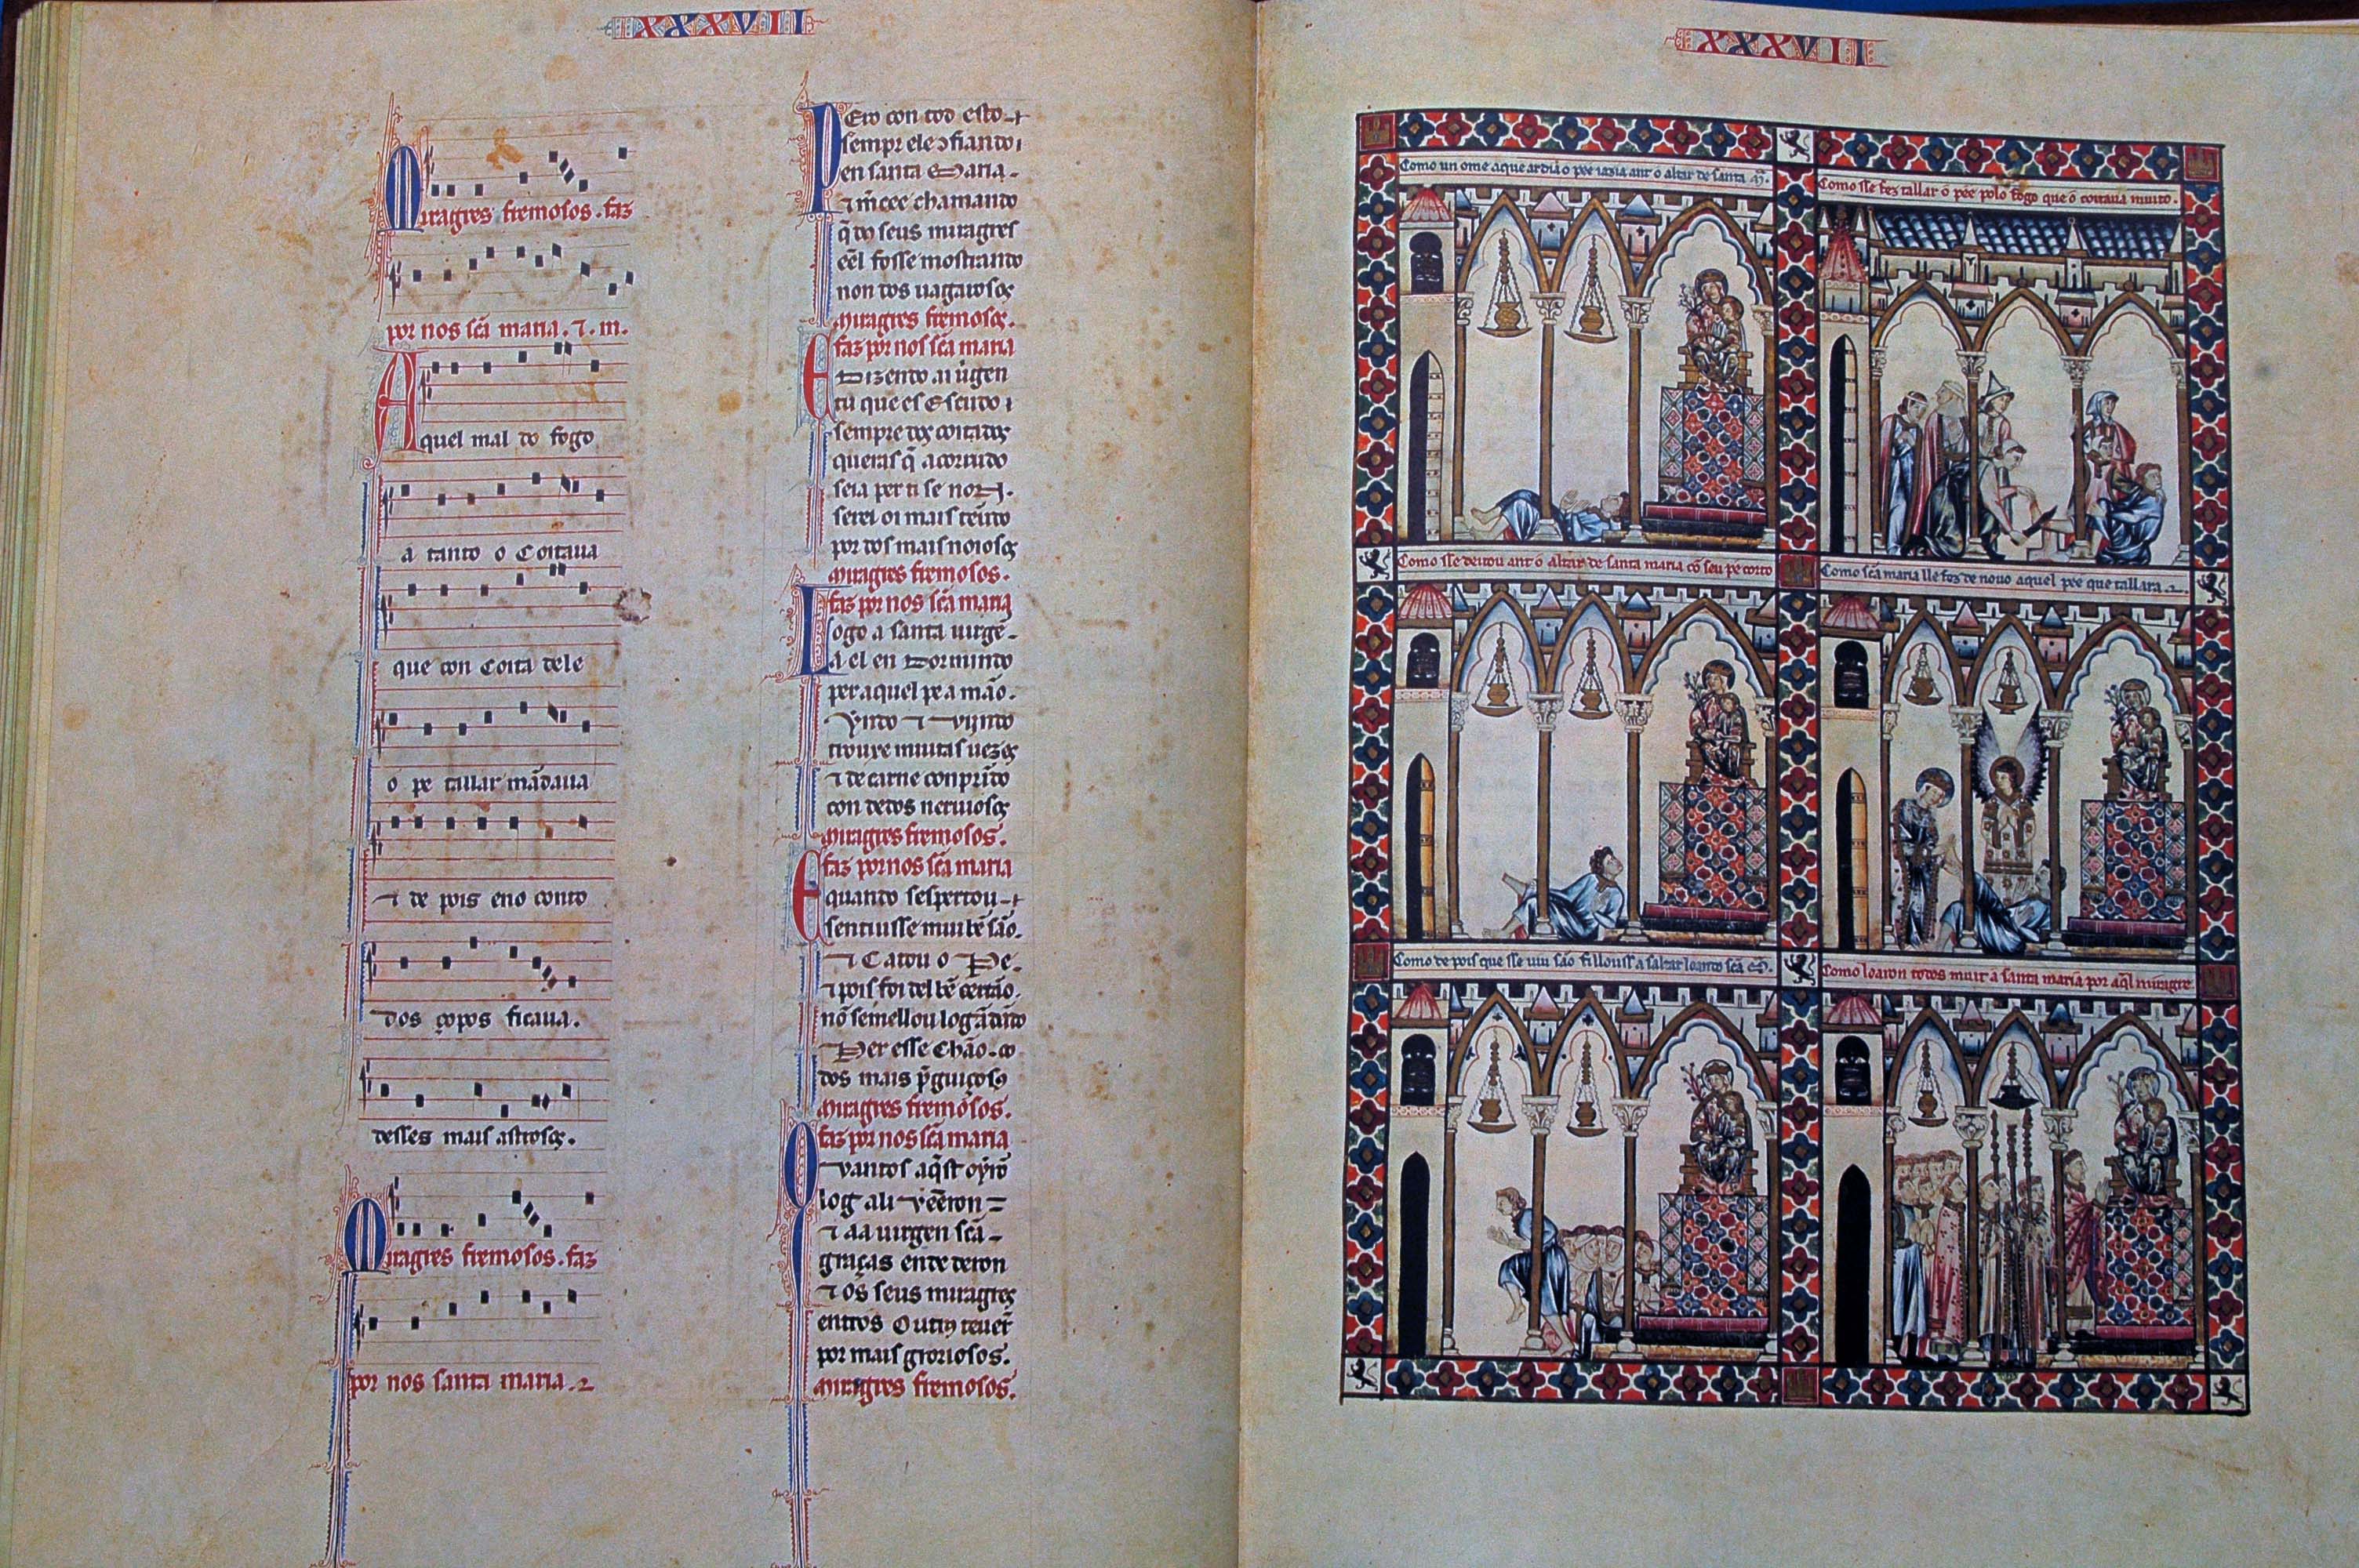 XXXVII
Miragres fremosos. faz
por nos scã maria. ⁊. m.
Aquel mal do fogo
a tanto o Coitaua
que con Coita dele
o pe tallar mãdaua
⁊ de pois eno conto
dos çopos ficaua.
desses mais astrosos.
Miragres fremosos. faz
por nos santa maria.
PEro con tod esto ⁊
sempr ele ↄfiando
en santa Maria.
⁊ m̃cee chamando
q̃ dos seus miragres
eel fosse mostrando
non dos uagarosos
Miragres fremosos.
faz por nos scã maria
E Dizendo ai uirgen
tu que es Escudo
sempre dos coitados
queras q̃ acorrudo
seia per ti se non.
serei oi mais tẽudo
por dos mais noiosos
Miragres fremosos.
faz por nos scã maria
Logo a santa uirgẽ
A el en Dormindo
per aquel pe a mão.
Yndo ⁊ vĩjndo
trouxe muitas uezes
⁊ de carne conprĩdo
con dedos neruiosos
Miragres fremosos.
faz por nos scã maria
E quando sespertou
sentiusse mui bẽ são.
⁊ Catou o Pe.
⁊ pois foi del bẽ certão.
nõ semellou log ãdando
Per esse Chão. co
dos mais p̃guiçosos
Miragres fremosos.
faz por nos scã maria
Quantos aq̃st oyrõ
log ali vẽeron
⁊ aa uirgen scã
graças ende deron
⁊ os seus miragres
entros Outros teuerõ
por mais groriosos.
Miragres fremosos.
XXXVII
Como un ome a que ardia o pee iazia ant o altar de santa M̃.
Como sse fez tallar o pee polo fogo que o coitaua muito.
Como sse deitou ant o altar de santa maria cõ seu pe corto
Como scã maria lle fez de nouo aquel pee que tallara.
Como de pois que sse uiu são fillouss a saltar loando scã M̃.
Como loaron todos muit a santa maria por aq̃l miragre.